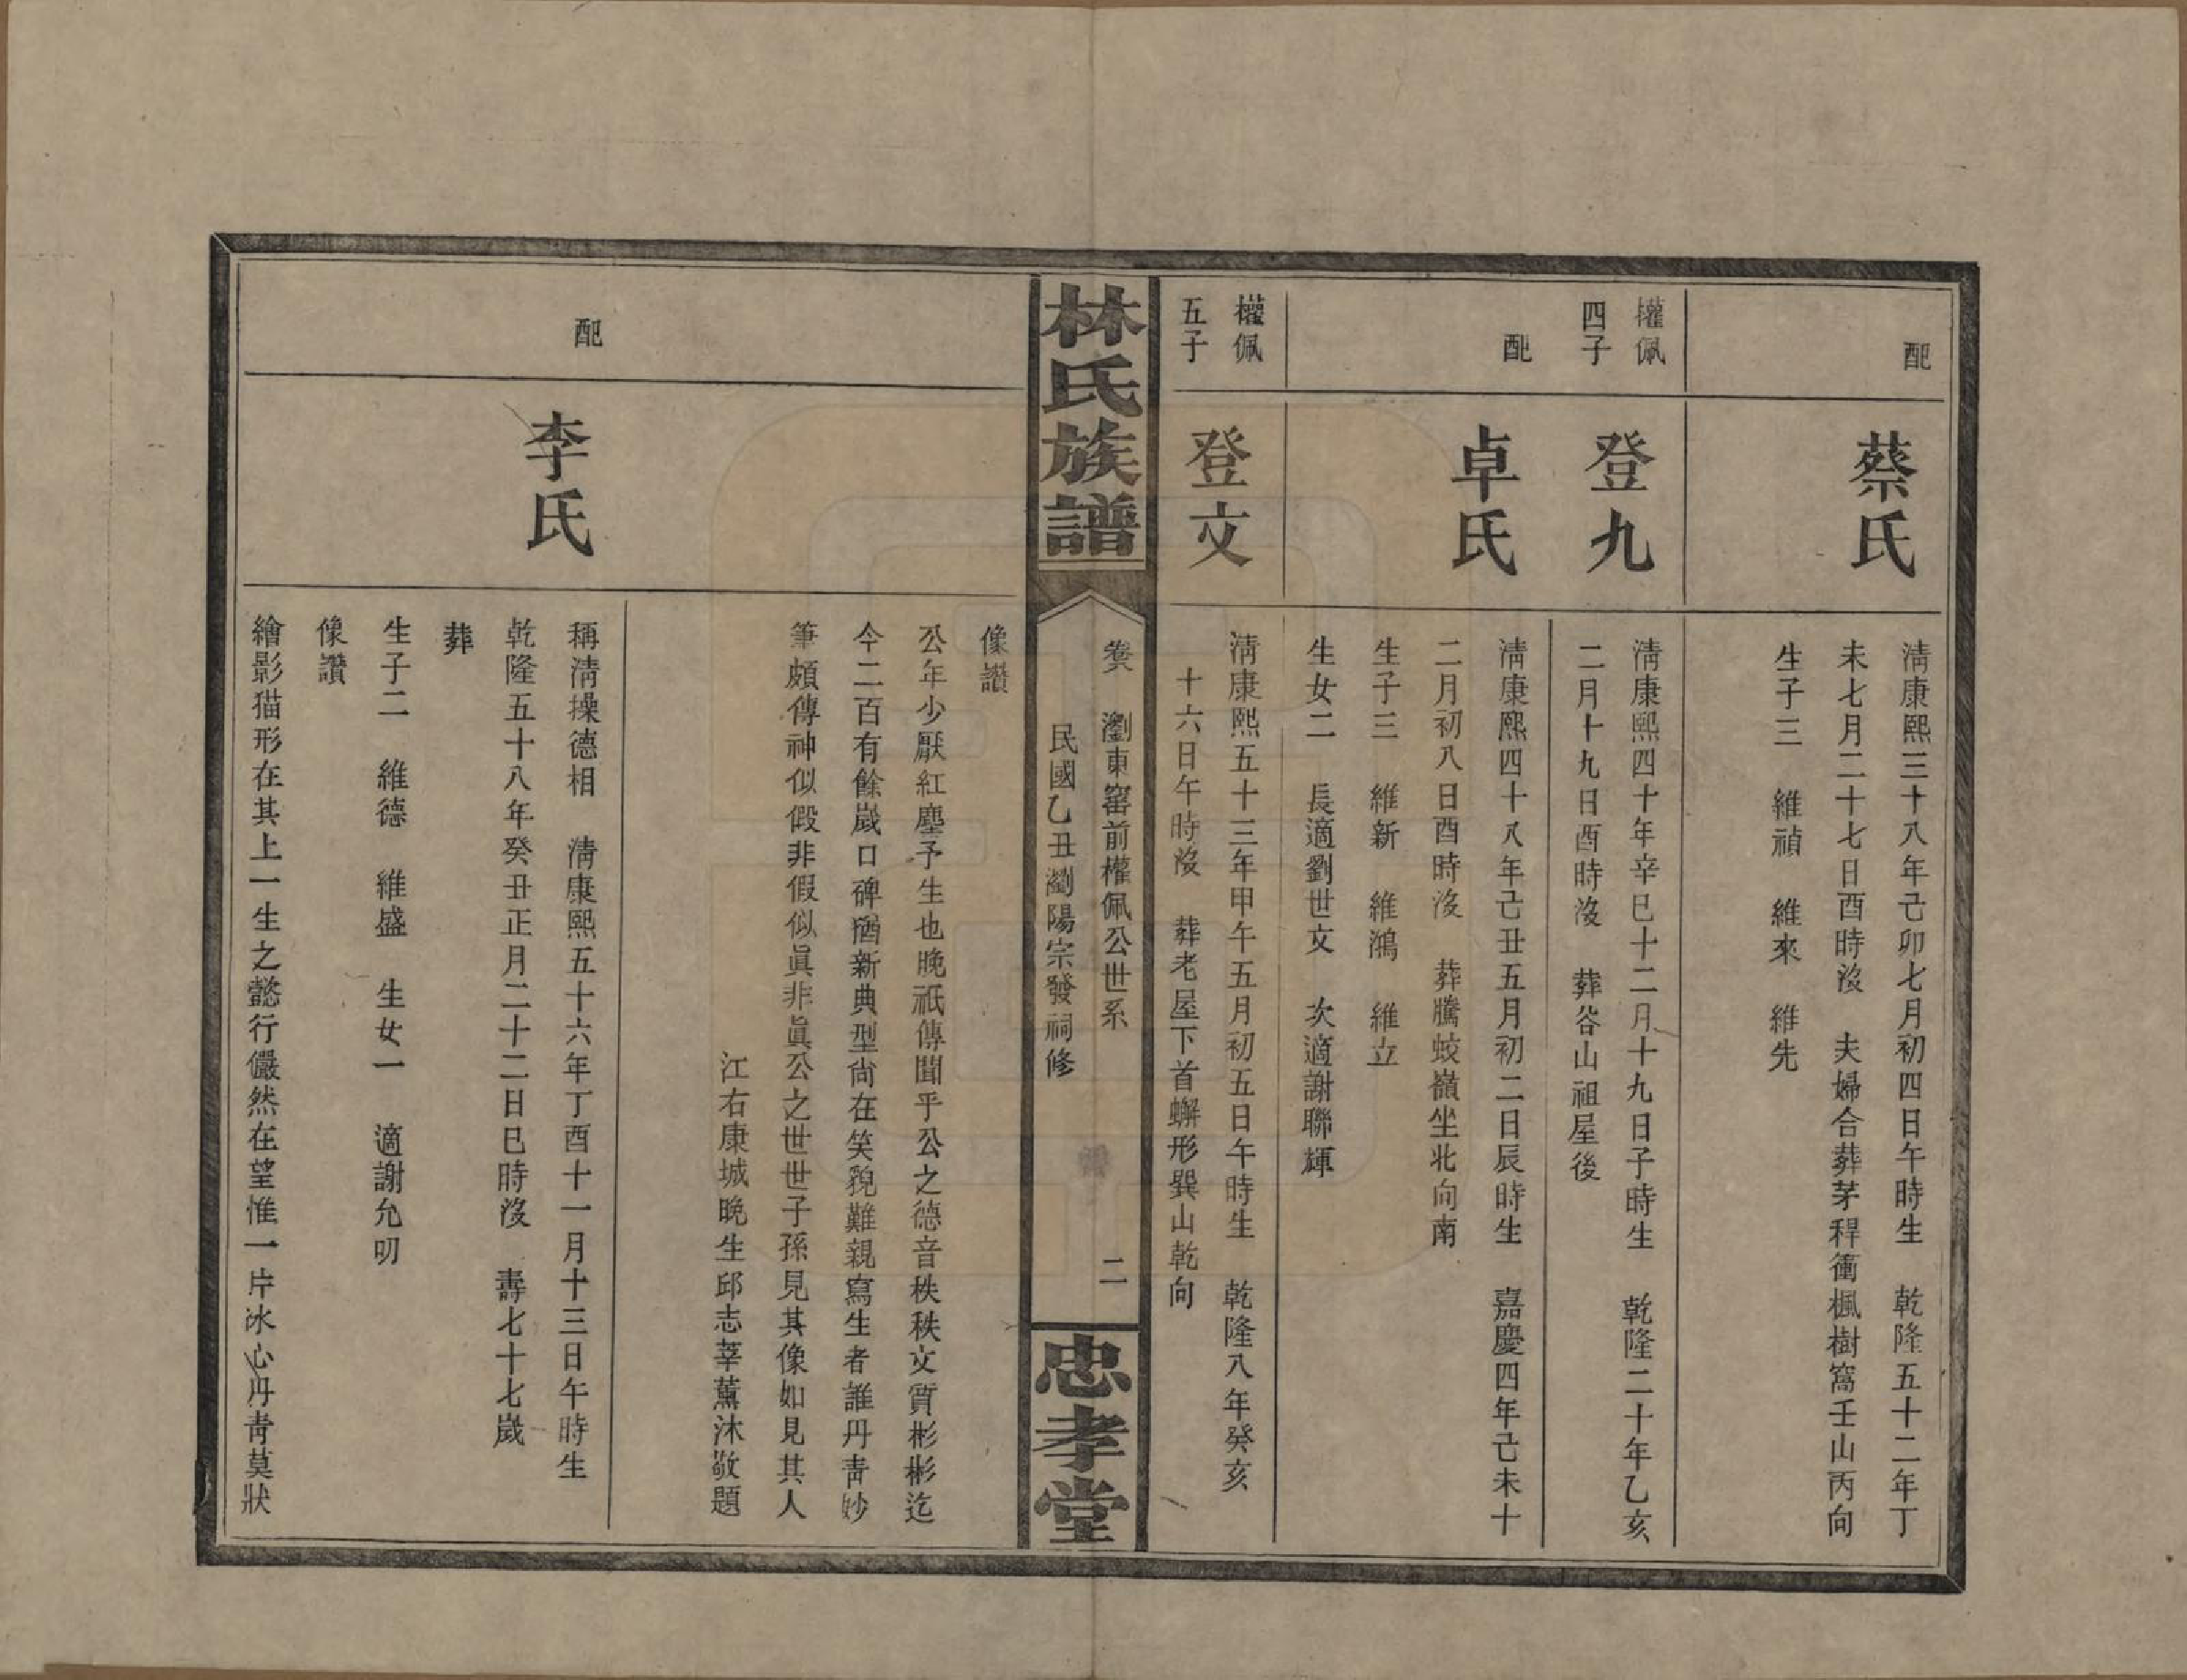 配
蔡氏
淸康熙三十八年己卯七月初四日午時生　乾隆五十二年丁
未七月二十七日酉時沒　夫婦合葬茅稈衝楓樹窩壬山丙向
生子三　維禎　維來　維先
權佩
四子
登九
淸康熙四十年辛巳十二月十九日子時生　乾隆二十年乙亥
二月十九日酉時沒　葬谷山祖屋後
配
卓氏
淸康熙四十八年己丑五月初二日辰時生　嘉慶四年己未十
二月初八日酉時沒　葬騰蛟嶺坐北向南
生子三　維新　維鴻　維立
生女二　長適劉世文　次適謝聯輝
權佩
五子
登文
淸康熙五十三年甲午五月初五日午時生　乾隆八年癸亥
十六日午時沒　葬老屋下首蠏形巽山乾向
林氏族譜
卷六　瀏東窰前權佩公世系　二
民國乙丑瀏陽宗發祠修
忠孝堂
像讚
公年少厭紅塵予生也晚祇傳聞乎公之德音秩秩文質彬彬迄
今二百有餘歲口碑猶新典型尙在笑貌難親寫生者誰丹靑妙
筆頗傳神似假非假似眞非眞公之世世子孫見其像如見其人
江右康城晚生邱志莘薰沐敬題
配
李氏
稱淸操德相　淸康熙五十六年丁酉十一月十三日午時生
乾隆五十八年癸丑正月二十二日巳時沒　壽七十七歲
葬
生子二　維德　維盛　生女一　適謝允叨
像讚
繪影猫形在其上一生之懿行儼然在望惟一片冰心丹靑莫狀